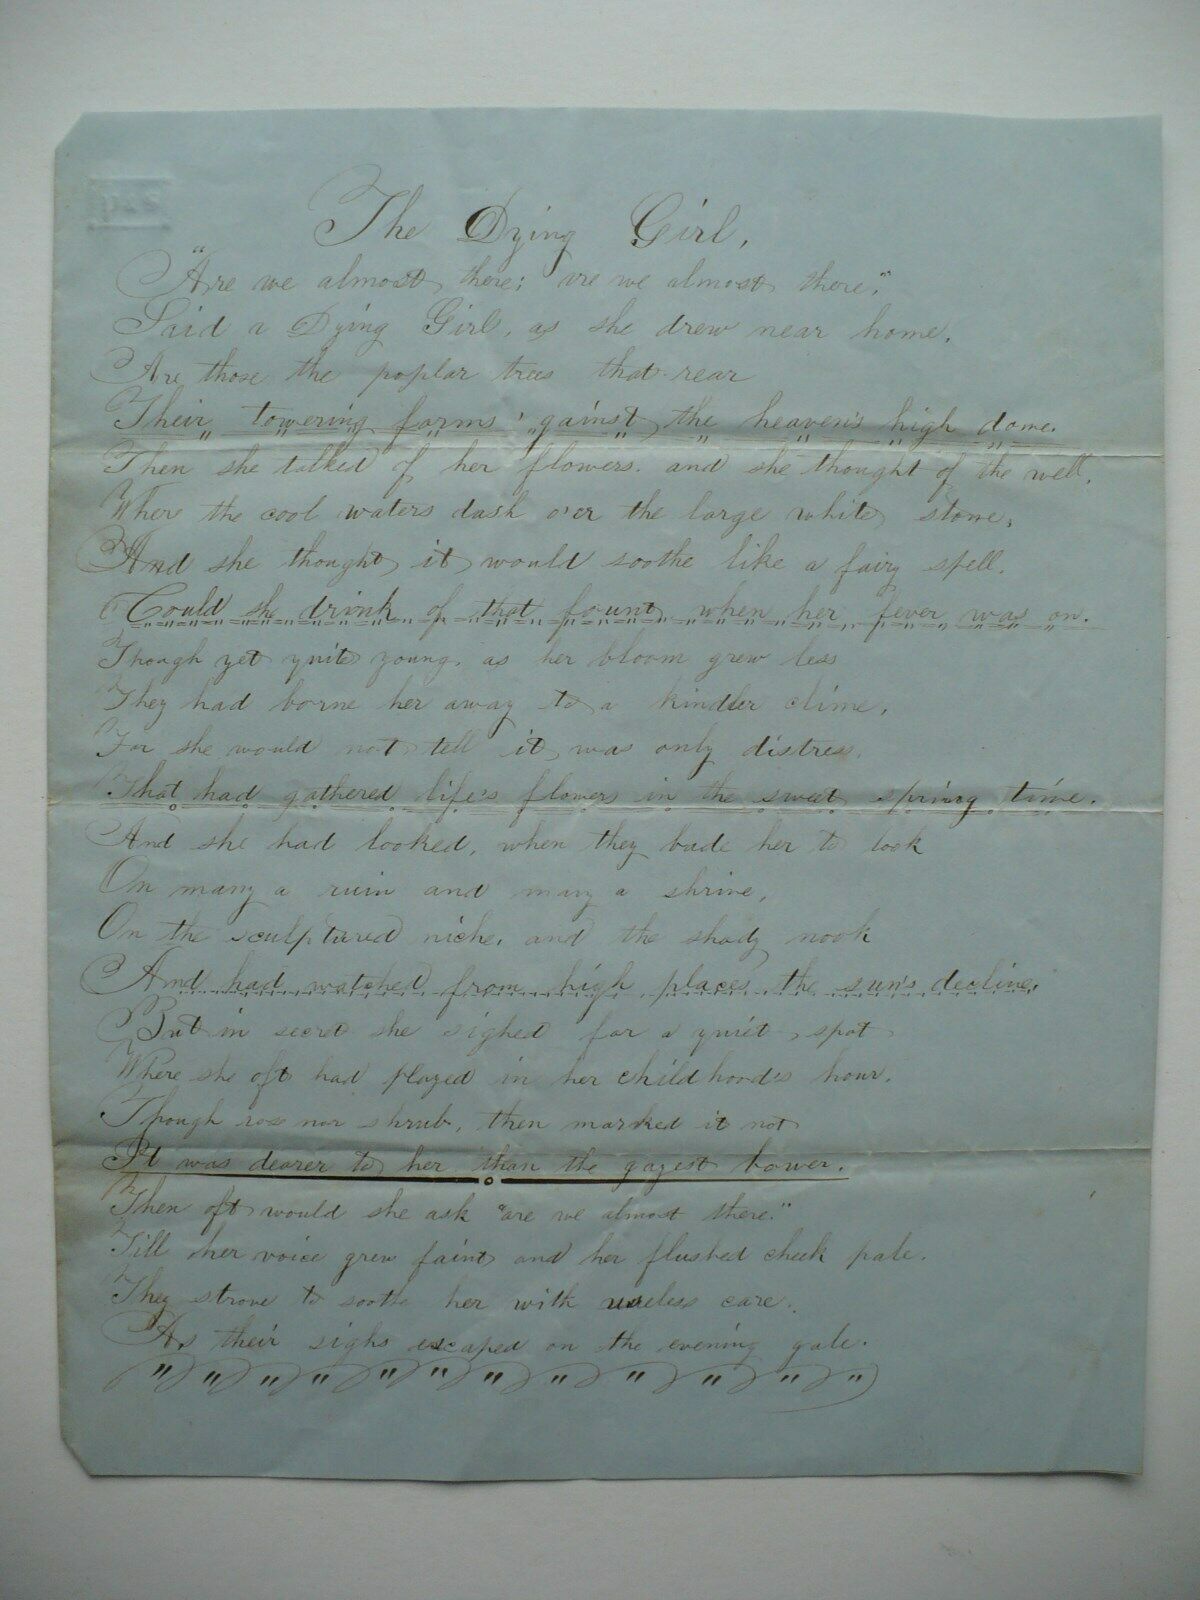 The Dying Girl,
"Are we almost there; are we almost there,"
Said a Dying Girl, as she drew near home,
Are those the poplar trees that rear
Their towering forms 'gainst the heaven's high dome.
Then she talked of her flowers. and she thought of the well,
Where the cool waters dash o'er the large white stone,
And she thought it would soothe like a fairy spell.
Could she drink of that fount when her fever was on.
Though yet quite young, as her bloom grew less
They had borne her away to a kinder clime,
For she would not tell it was only distress,
That had gathered life's flowers in the sweet spring time.
And she had looked, when they bade her to look
On many a ruin and many a shrine,
On the sculptured niche, and the shady nook
And had watched from high places the sun's decline.
But in secret she sighed for a quiet spot
Where she oft had played in her childhoods hour.
Though rose nor shrub, then marked it not
It was dearer to her than the gayest bower.
Then oft would she ask "are we almost there."
Till her voice grew faint and her flushed cheek pale.
They strove to soothe her with useless care.
As their sighs escaped on the evening gale.